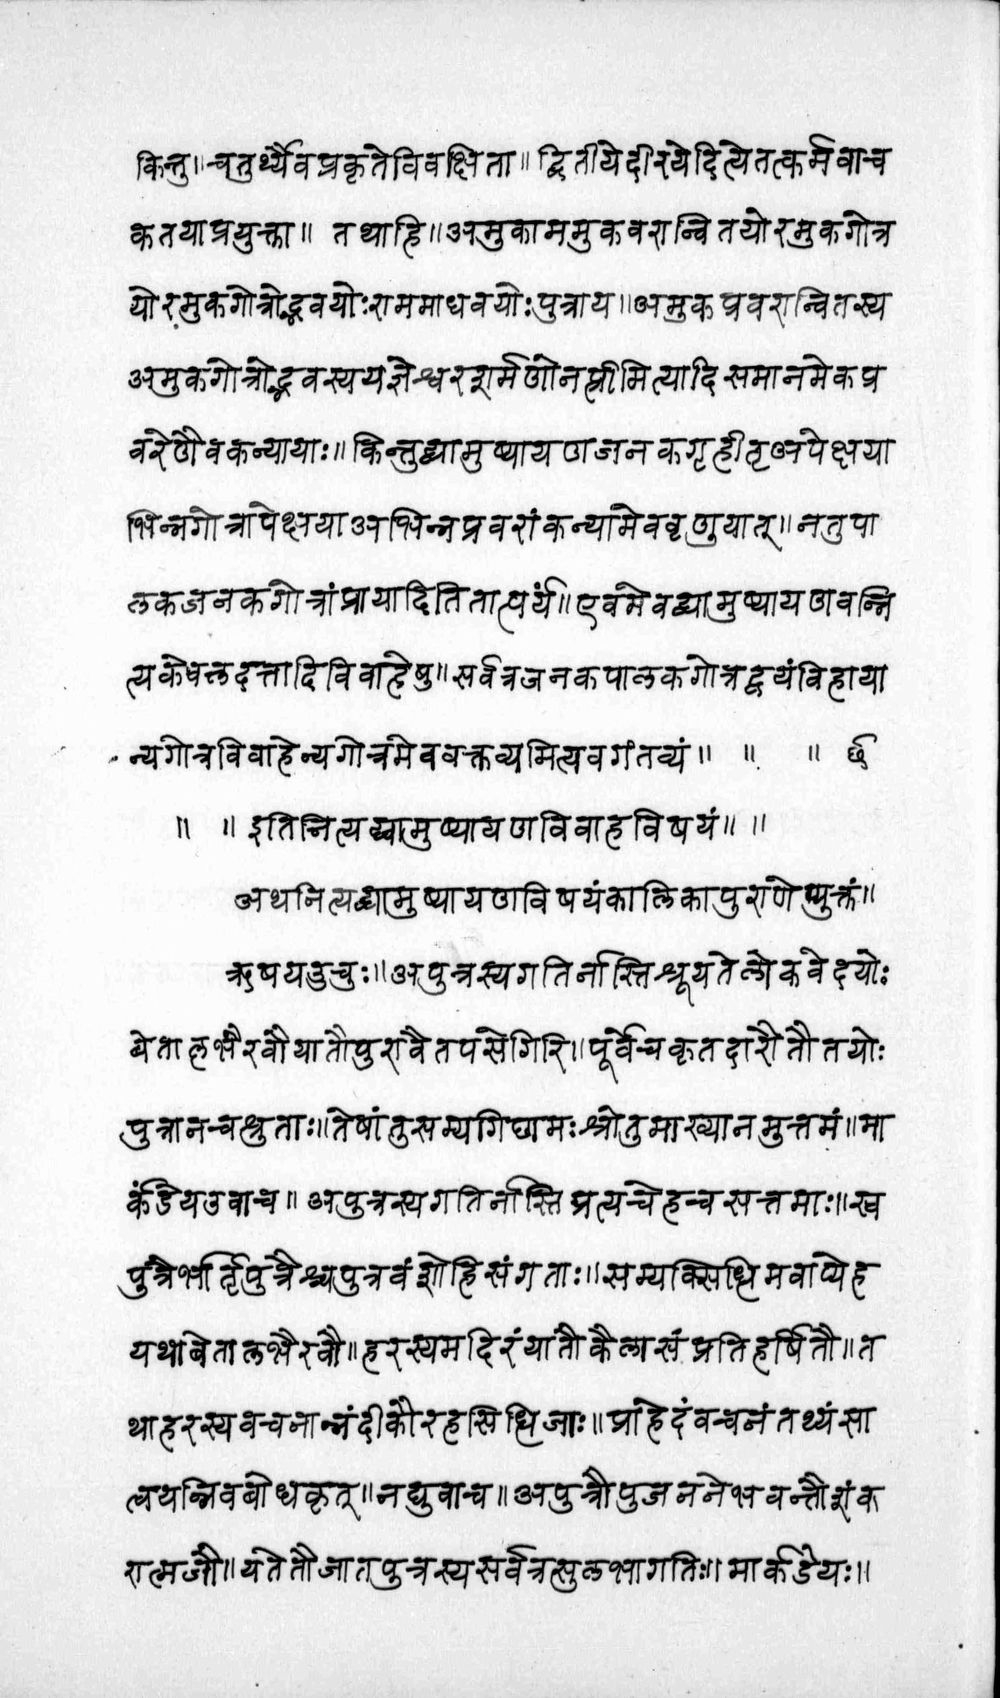 किन्तु॥चतुर्थ्यैवप्रकृतेविवक्षिता॥द्वितीयेदीरयेदित्येतत्कर्मवाच
कतयाप्रयुक्ता॥ तथाहि॥अमुकाममुकवरान्वितयोरमुकगोत्र
योरमुकगोत्रोद्भवयोःराममाधवयोःपुत्राय॥अमुकप्रवरान्वितस्य
अमुकगोत्रोद्भवस्ययज्ञेश्वरशर्मणोनप्त्रीमित्यादिसमानमेकप्र
वरेणैवकन्यायाः॥किन्तुद्व्यामुष्यायणजनकगृहीतृअपेक्षया
भिन्नगोत्रापेक्षयाअभिन्नप्रवरांकन्यामेववृणुयात्॥नतुपा
लकजनकगोत्रांप्रायादितितात्पर्यं॥एवमेवद्व्यामुष्यायणवन्नि
त्यकेवलदत्तादिविवाहेषु॥सर्वत्रजनकपालकगोत्रद्वयंविहाया
न्यगोत्रविवाहेन्यगोत्रमेववक्तव्यमित्यवगंतव्यं॥ ॥ ॥ छ
॥ ॥इतिनित्यद्व्यामुष्यायणविवाहविषयं॥ ॥
अथनित्यद्व्यामुष्यायणविषयंकालिकापुराणेप्युक्तं॥
ऋषयउचुः॥अपुत्रस्यगतिर्नास्तिश्रूयतेलोकवेदयोः
बेतालभैरवौयातौपुरावैतपसेगिरि॥पूर्वेचकृतदारौतौतयोः
पुत्रानचश्रुताः॥तेषांतुसम्यगिछामःश्रोतुमाख्यानमुत्तमं॥मा
र्कंडेयउवाच॥अपुत्रस्यगतिर्नास्तिप्रत्यचेहचसत्तमाः॥स्व
पुत्रैर्भ्रातृपुत्रैश्चपुत्रवंशोहिसंगताः॥सम्यक्सिधिमवाप्येह
यथाबेतालभैरवौ॥हरस्यमदिरंयातौकैलासंप्रतिहर्षितौ॥त
थाहरस्यवचनान्नंदीकौरहसिधिजाः॥प्राहेदंवचनंतथ्यंसा
त्वयन्निवबोधकृत्॥नद्युवाच॥अपुत्रौपुजननेभवन्तौशंक
रात्मजौ॥यतेतौजातपुत्रस्यसर्वत्रसुलभागतिः॥मार्कडेयः॥